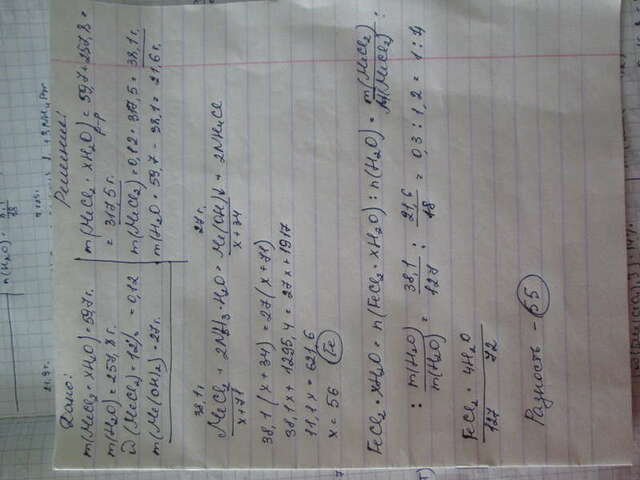 Дано:
m(MeCl₂ · xH₂O) = 59,7 г.
m(H₂O) = 257,8 г.
ω(MeCl₂) = 12% = 0,12
m(Me(OH)₂) = 27 г.
Решение:
m(MeCl₂ · xH₂O) р-р = 59,7 + 257,8 =
= 317,5 г.
m(MeCl₂) = 0,12 · 317,5 = 38,1 г.
m(H₂O = 59,7 - 38,1 = 21,6 г.
38,1 г. 27 г.
MeCl₂ + 2NH₃ · H₂O = Me(OH)₂↓ + 2NH₄Cl
x+71 x+34
38,1 (x+34) = 27 (x+71)
38,1x + 1295,4 = 27x + 1917
11,1x = 621,6
x = 56 Fe
FeCl₂ · xH₂O = n(FeCl₂ · xH₂O) : n(H₂O) = m(MeCl₂) / M(MeCl₂) :
: m(H₂O) / M(H₂O) = 38,1 / 127 : 21,6 / 18 = 0,3 : 1,2 = 1 : 4
FeCl₂ · 4H₂O
127 72
Разность - 55